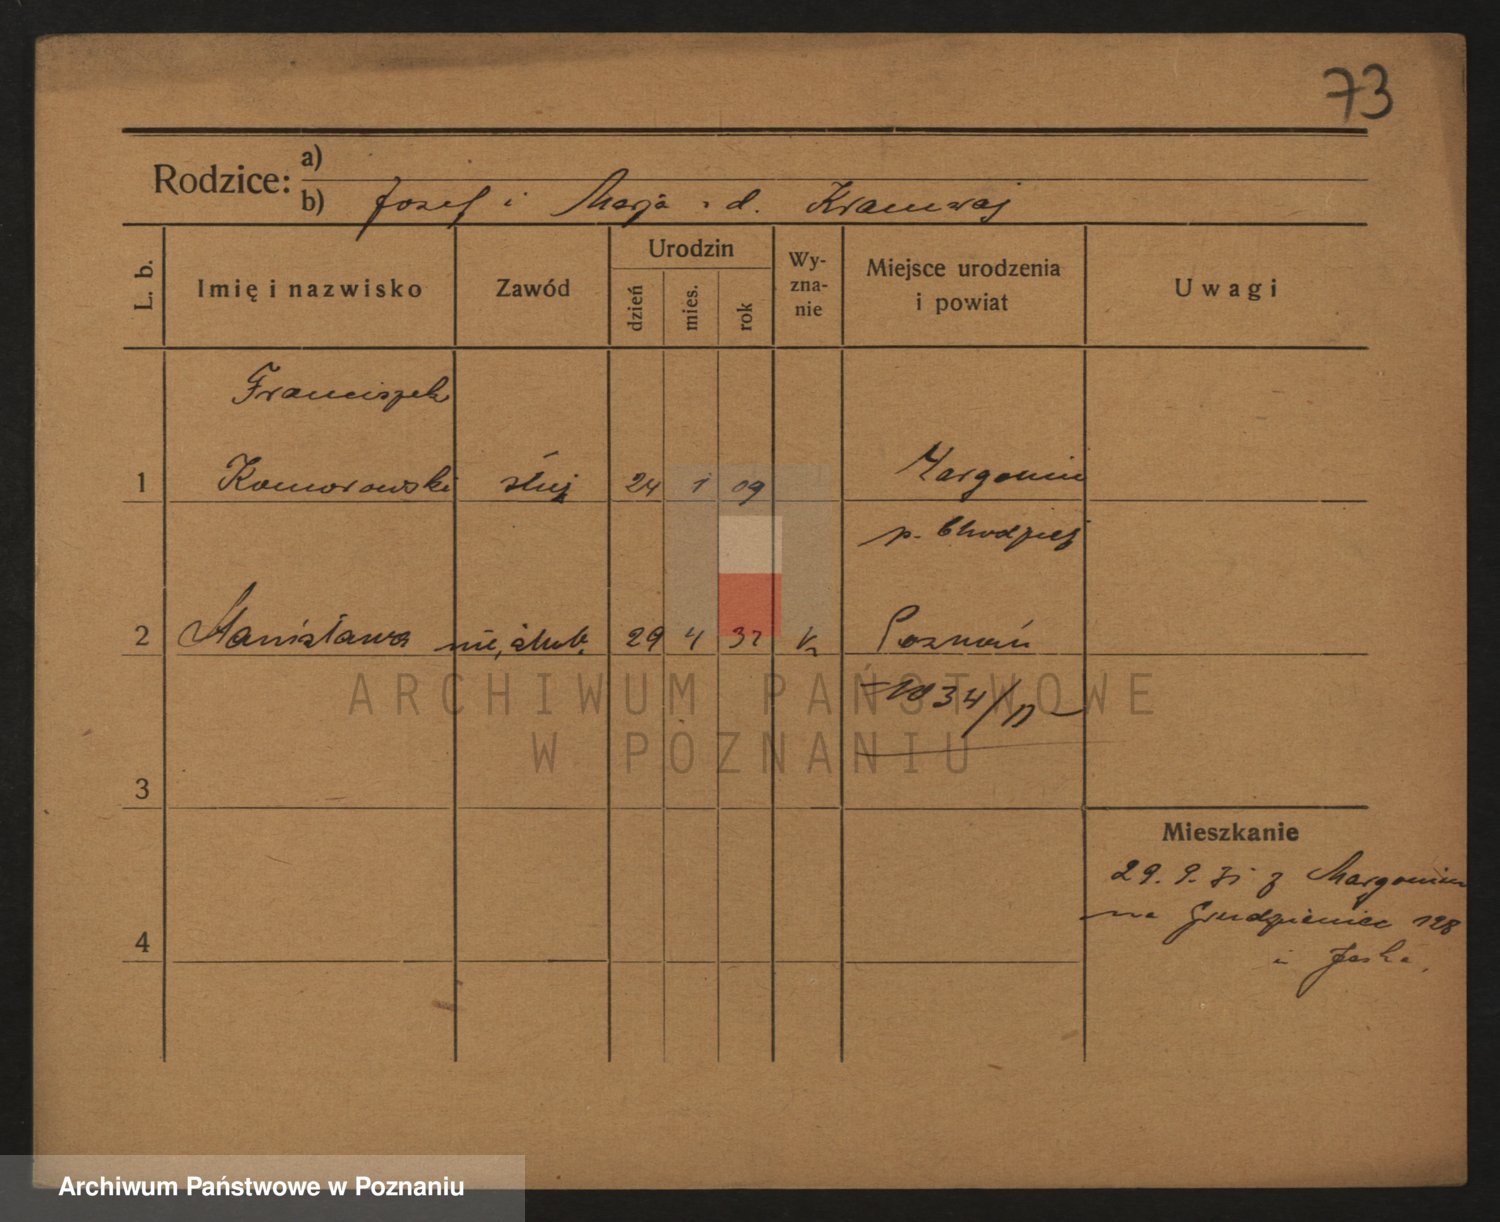 73
Rodzice:
a)
b) Józef i Marja z d.
L. b.
Imię i nazwisko
Zawód
Urodzin
dzień
mies.
rok
Wy-
zna-
nie
Miejsce urodzenia
i powiat
Uwagi
Franciszek
1 Komorowski służ 24 1 09 Margonin
p. Chodzież
2 Stanisława nie, ślub. 29 4 32 Poznań
1034/
3
Mieszkanie
29. 9. 31 z Margonin
na 128
u
4
ARCHIWUM PAŃSTWOWE
W POZNANIU
Archiwum Państwowe w Poznaniu